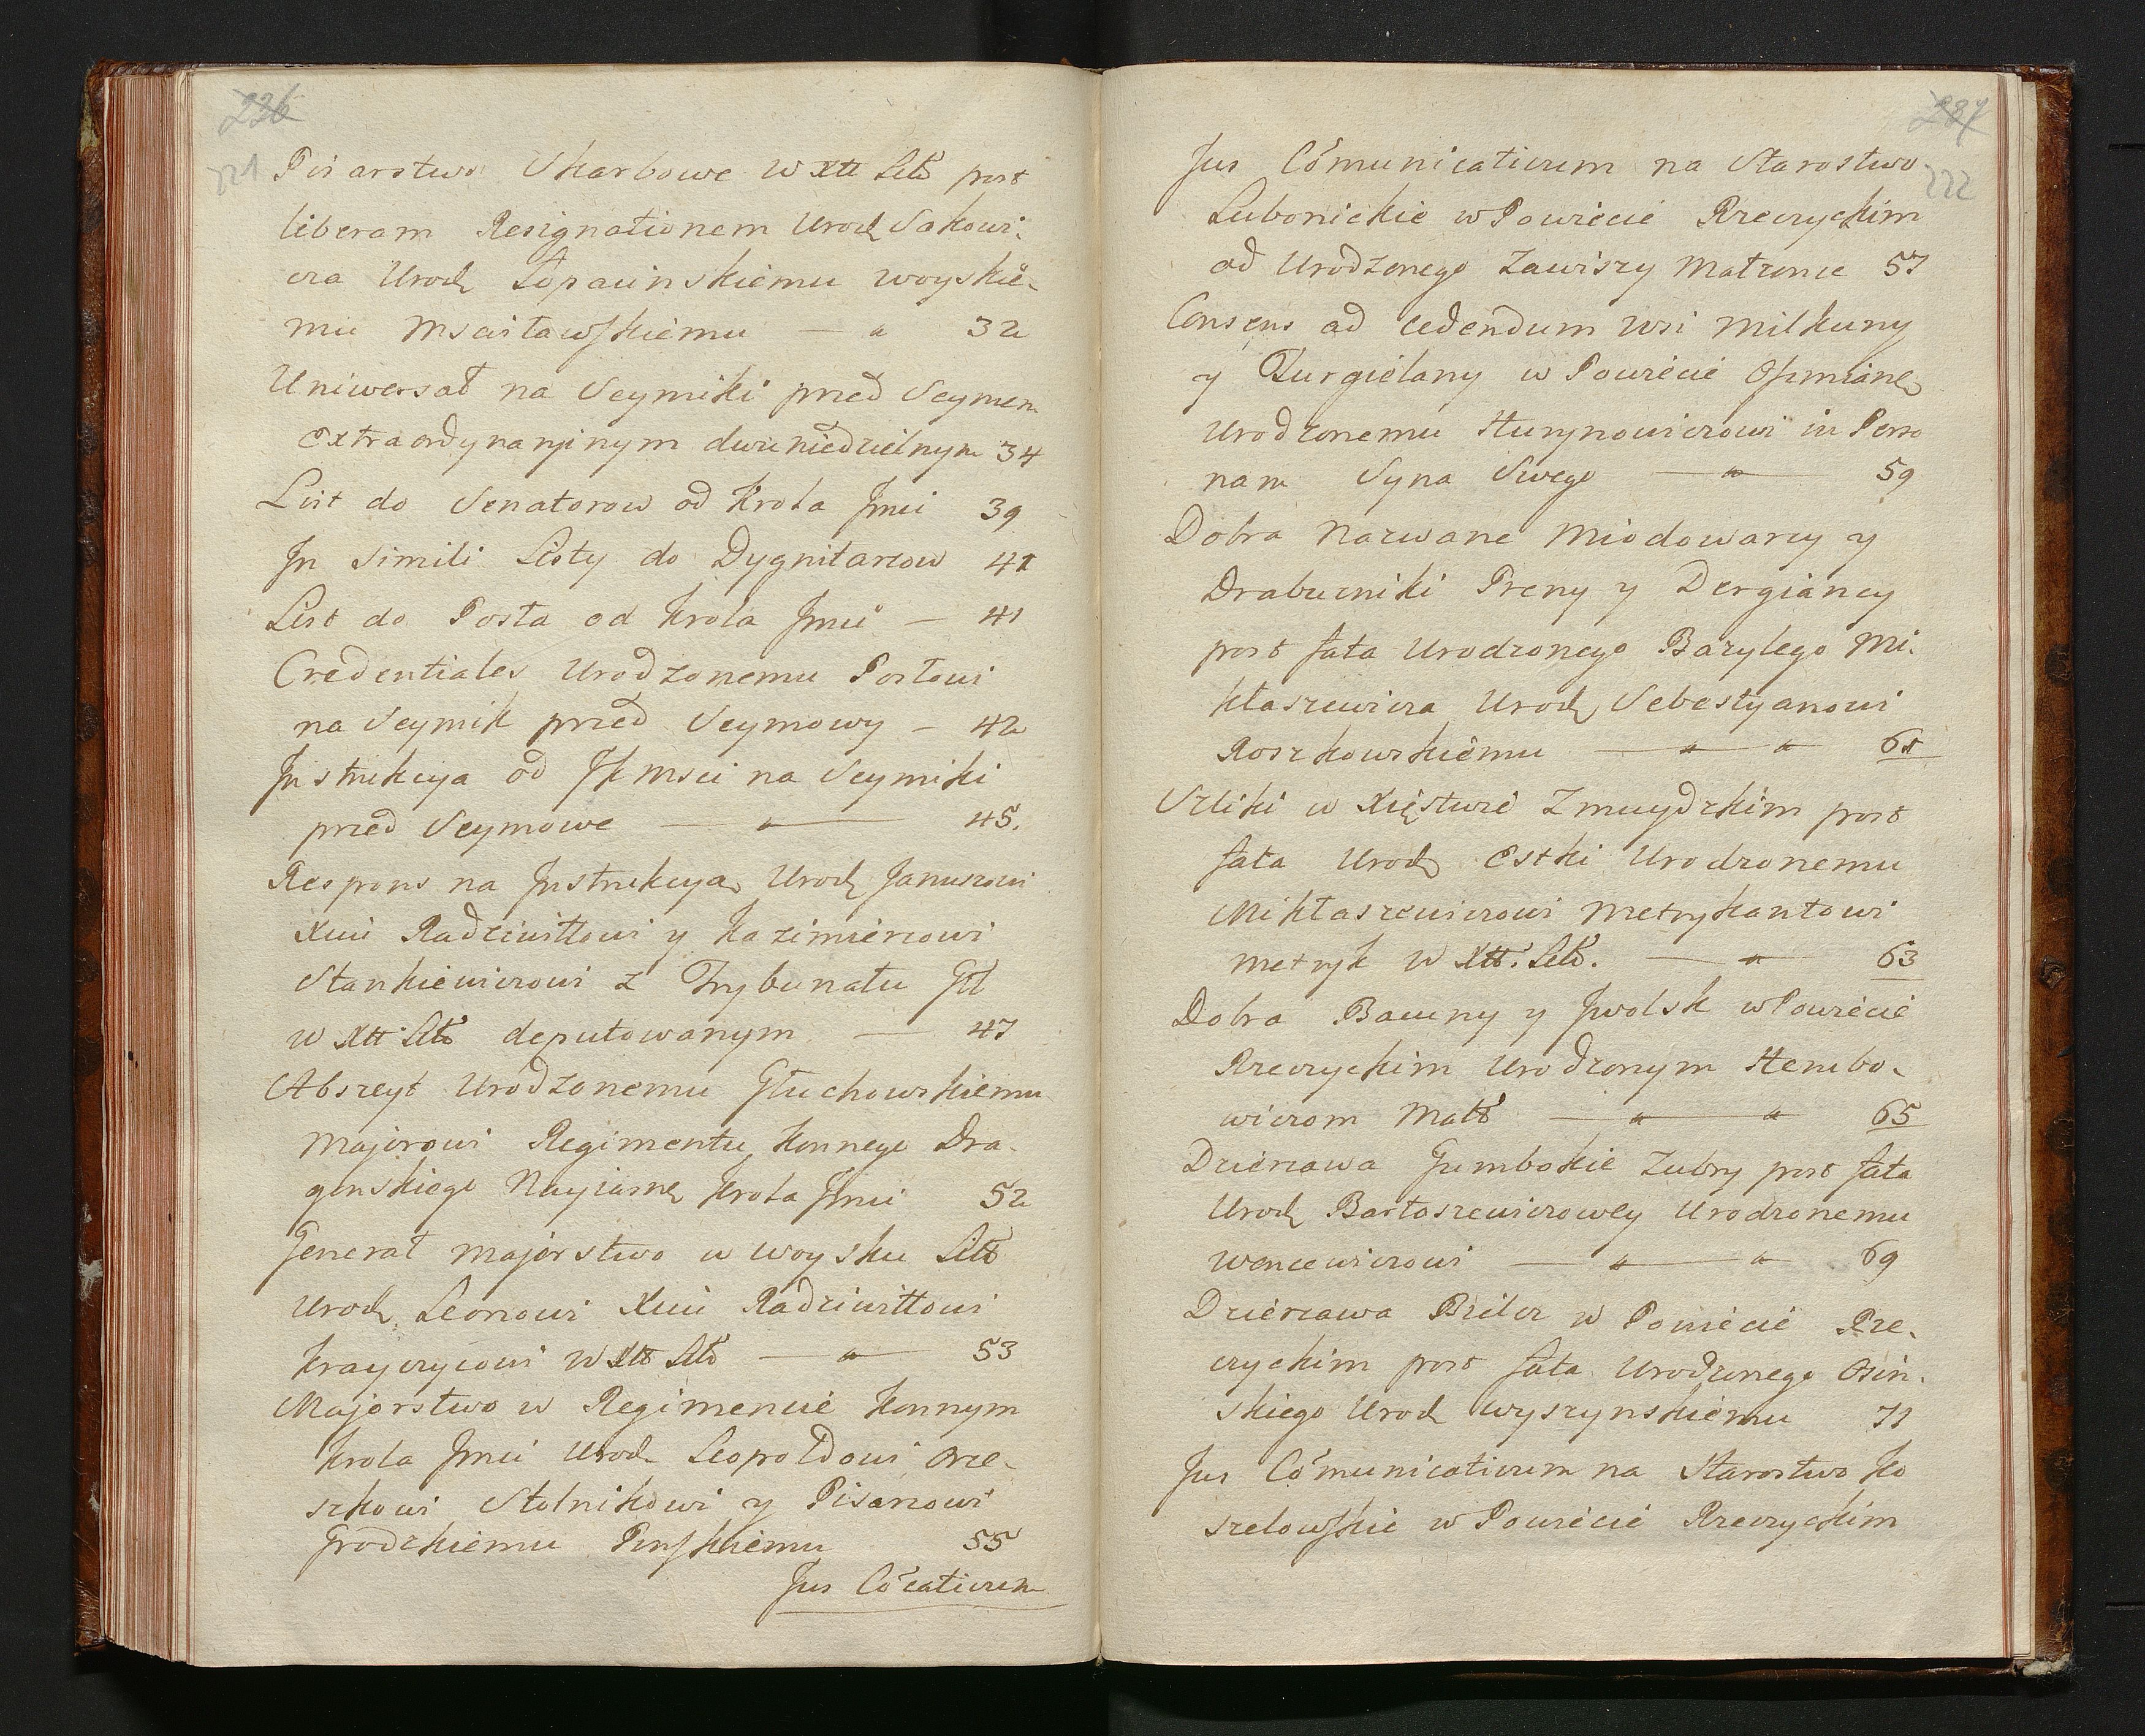 236
221
Pisarstwo Skarbowe W Xtt Litt post
liberam Resignationem Urodz Sakowi-
cza Urodz Łopacinskiemu Woyskie-
mu Mscisławskiemu — " 32
Uniwersał na Seymiki przed Seymem
Extraordynaryinym dwuniedzielnym 34
List do Senatorow od Krola Jmci 39
In Simili Listy do Dygnitarzow 41
List do Posła od Krola Jmci — 41
Credentiales Urodzonemu Posłowi
na Seymik przed Seymowy — 42
Instrukcya od JK Msci na Seymiki
przed Seymowe — " — 45.
Respons na Instrukcyą Urodz Januszowi
Xciu Radziwiłłowi y Kazimierzowi
Stankiewiczowi z Trybunału Gtt
W Xtt Litt deputowanym — 47
Abszeyt Urodzonemu Głuchowskiemu
Majorowi Regimentu Konnego Dra-
gonskiego Nayiasne Krola Jmci 52
Generał Majorstwo w Woysku Litt
Urodz Leonowi Xciu Radziwiłłowi
Krayczycowi W Xtt Litt — " — 53
Majorstwo w Regimencie Konnym
Krola Jmci Urodz Leopoldowi Orze-
szkowi Stolnikowi y Pisarzowi
Grodzkiemu Pinskiemu 55
Jus Cõcativum
237
222
Jus Cõmunicativum na Starostwo
Lubonickie w Powiecie Rzeczyckim
od Urodzonego Zawiszy Matzonce 57
Consens ad cedendum Wsi Milkuny
y Gurgielany w Powiecie Oszmian
Urodzonemu Hurynowiczowi in Perso
nam Syna Swego — " — 59
Dobra Nazwane Miodowarcy y
Draburniki Preny y Dergiancy
post fata Urodzonego Bazylego Mi-
kłaszewicza Urodz Sebestyanowi
Roszkowskiemu — " — " 61
Szliki w Xięstwie Zmuydzkim post
fata Urodz Estki Urodzonemu
Mikłaszewiczowi Metrykantowi
Metryk W Xtt. Litt. — " — 63
Dobra Baczny y Jwolsk w Powiecie
Rzeczyckim Urodzonym Hembo-
wiczom Małż — " — " 65
Dzierzawa Gumbokie Zubry post fata
Urodz Bartoszewiczowey Urodzonemu
Wencewiczowi — " — " 69
Dzierzawa Bzilcz w Powiecie Rze-
czyckim post fata Urodzonego Osin-
skiego Urodz Wyszynskiemu 71
Jus Cõmunicativum na Starostwo Ko
szelowskie w Powiecie Rzeczyckim